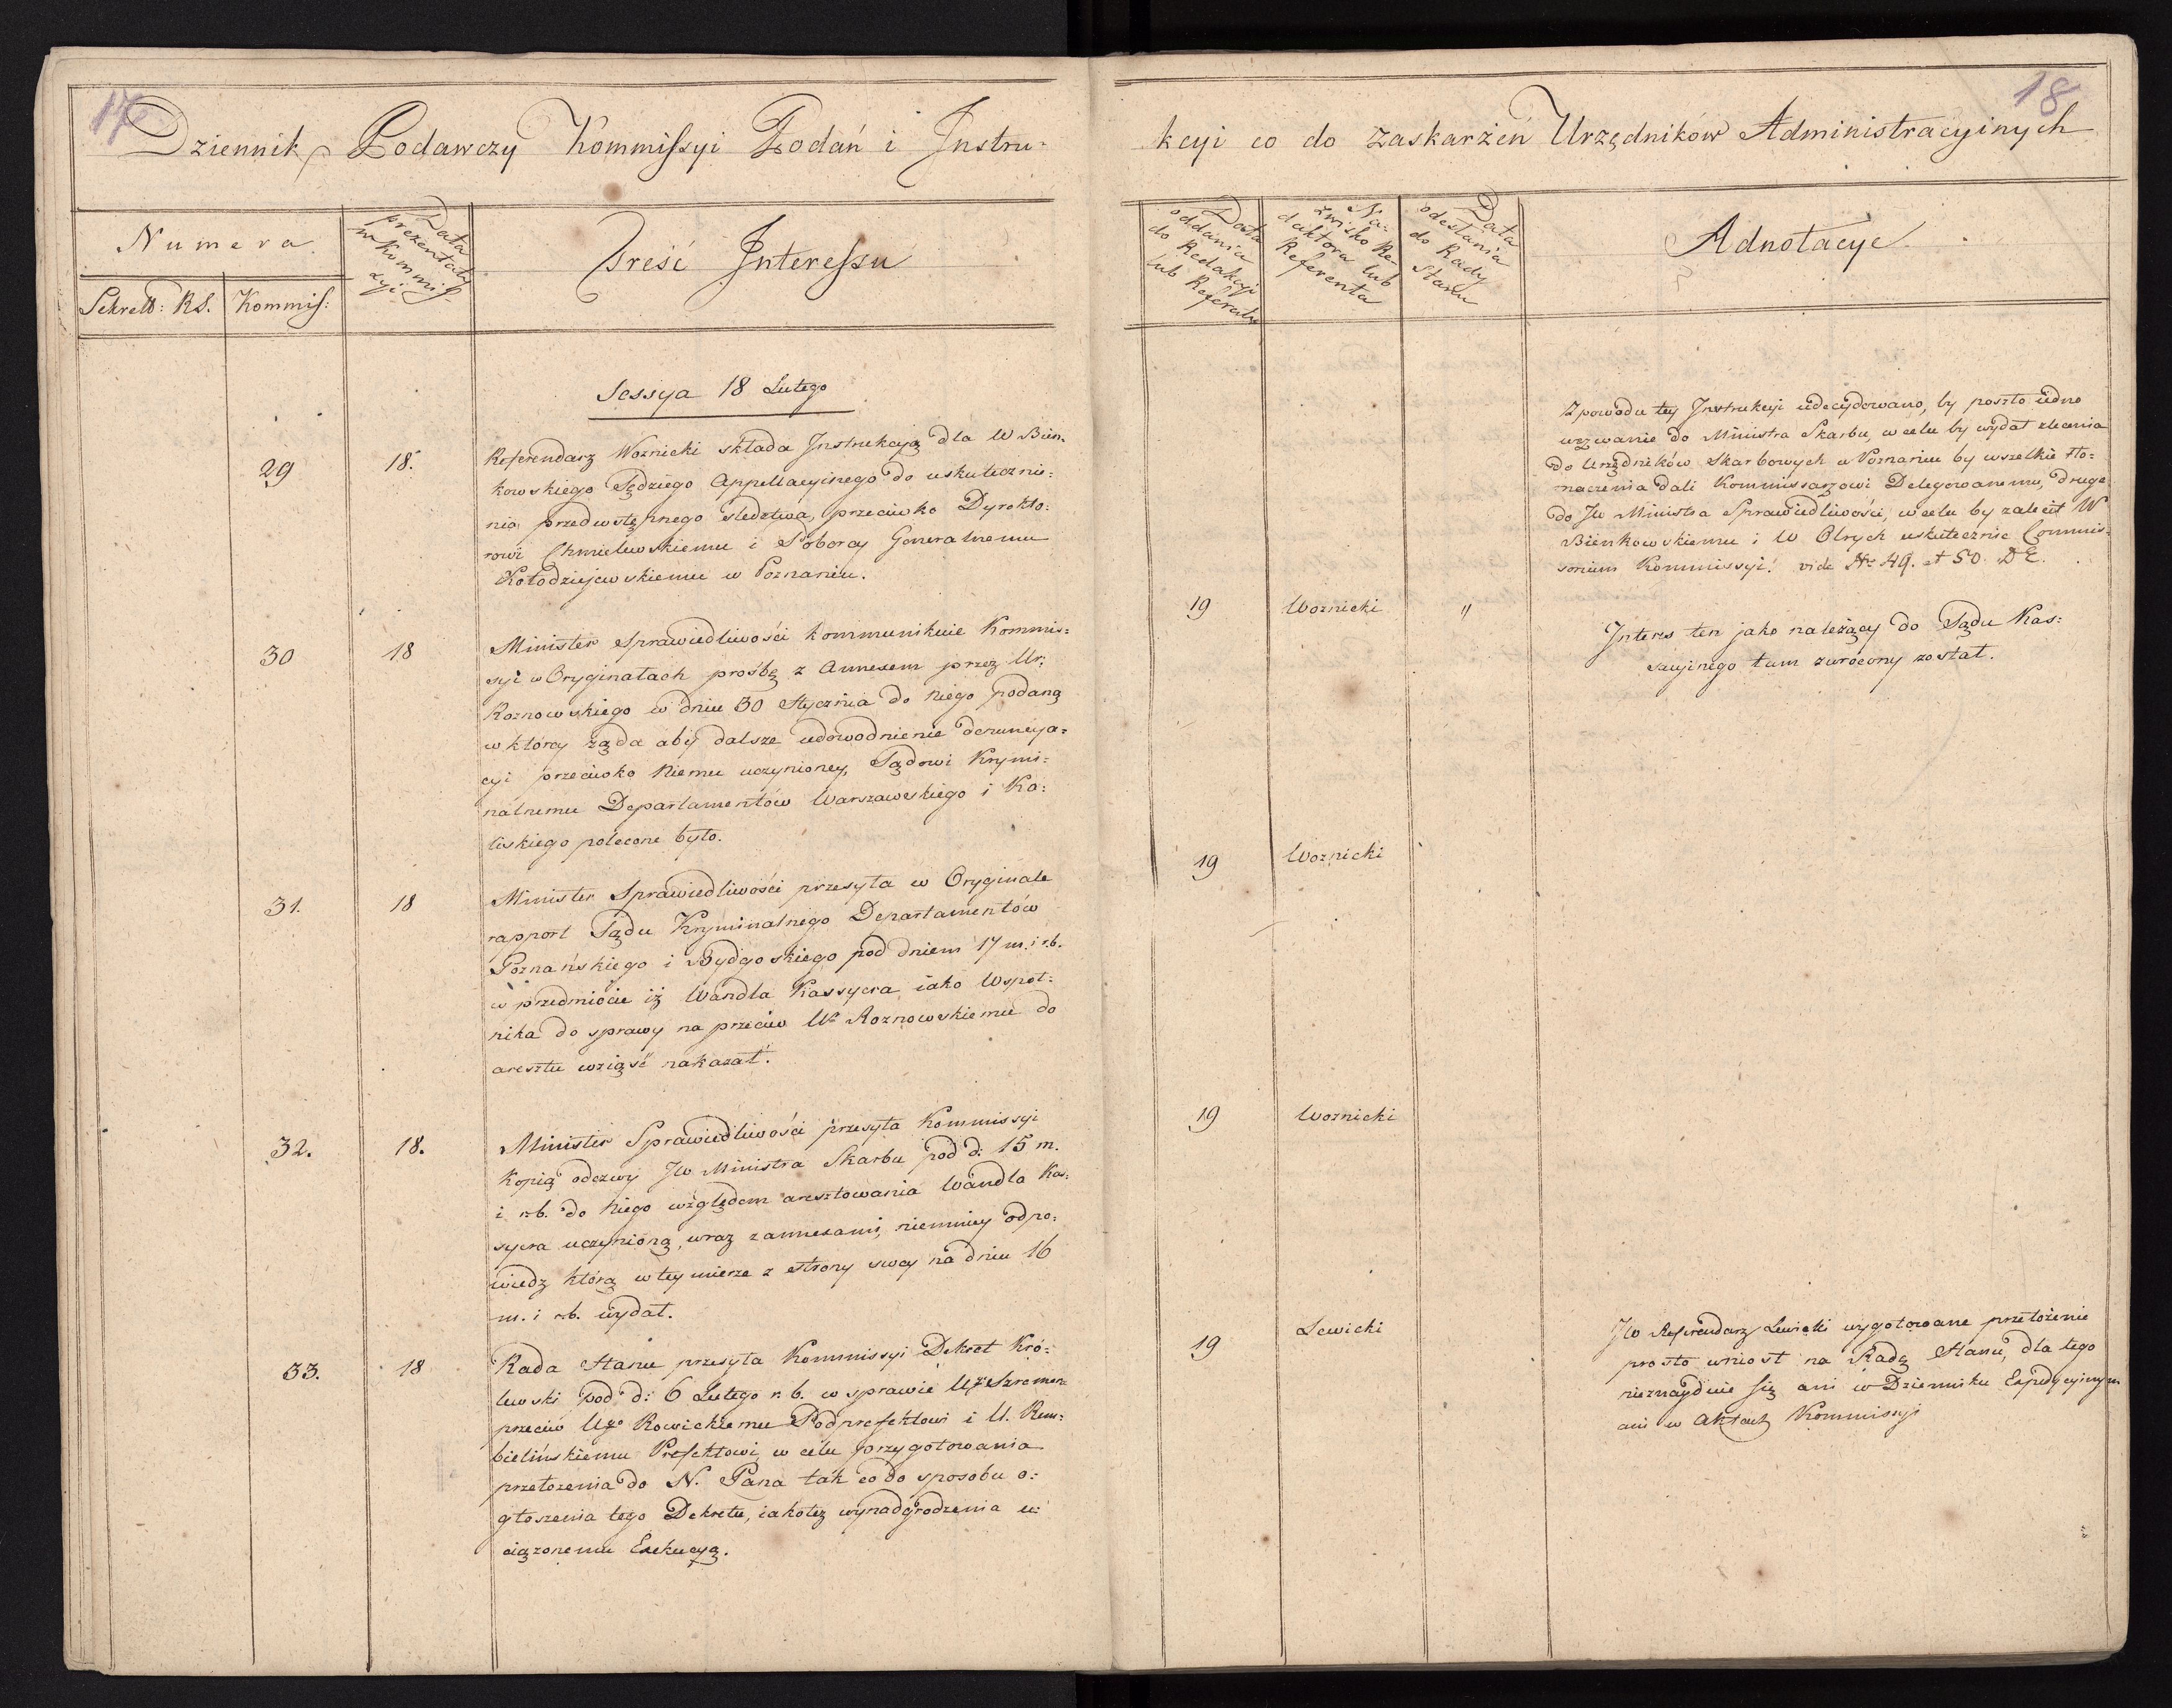 17
Dziennik Podawczy Kommissyi Podań i Instru-
Numera
Sekrett: RS.
Kommis:
Data
prezentaty
w Kommis-
syi
Treść Interessu
Sessya 18 Lutego
29
18.
Referendarz Woznicki składa Instrukcyą dla W Bien-
kowskiego Sędziego Appellacyinego do uskutecznie-
nia przedwstępnego sledztwa, przeciwko Dyrekto-
rowi Chmielewskiemu i Poborcy Generalnemu
Kołodziejewskiemu w Poznaniu.
30
18
Minister Sprawiedliwości kommunikuie Kommis-
syi w Oryginałach prośbę z Annexem przez Ur:
Roznowskiego w dniu 30 Stycznia do Niego podaną
w którey żąda aby dalsze udowodnienie denuncya-
cyi przeciwko Niemu uczynioney, Sądowi Krymi-
nalnemu Departamentów Warszawskiego i Ka-
liskiego polecone było.
31.
18
Minister Sprawiedliwości przesyła w Oryginale
rapport Sądu Kryminalnego Departamentów
Poznańskiego i Bydgoskiego pod dniem 17 m. i r.b.
w przedmiocie iż Wandla Kassyera iako Wspol-
nika do sprawy na przeciw Ur Roznowskiemu do
aresztu wziąść nakazał.
32.
18.
Minister Sprawiedliwości przesyła Kommissyi
Kopią odezwy JW Ministra Skarbu pod d: 15 m.
i r.b. do Niego względem aresztowania Wandla Kas-
syera uczynioną, wraz z annexami, niemniey odpo-
wiedz którą w tey mierze z strony swey na dniu 16
m. i r.b. wydał.
33.
18
Rada Stanu przesyła Kommissyi Dekret Kró-
lewski pod d: 6 Lutego r. b. w sprawie Ugo
przeciw Ugo Rowickiemu Podprefektowi i U. Rem-
bielińskiemu Prefektowi, w celu przygotowania
przełożenia do N. Pana tak co do sposobu o-
głoszenia tego Dekretu, iako też wynadgrodzenia u-
ciążonemu Exekucyą.
18
kcyi co do zaskarżeń Urzędników Administracyinych
Data
oddania
do Redakcyi
lub Referatu
Na-
zwisko Re-
daktora lub
Referenta
Data
odesłania
do Rady
Stanu
Adnotacye
Z powodu tey Instrukcyi udecydowano, by poszło iedno
wezwanie do Ministra Skarbu, w celu by wydał zlecenia
do Urzędników Skarbowych w Poznaniu by wszelkie tło-
maczenia dali Kommissarzowi Delegowanemu, drugie
do JW Ministra Sprawiedliwości, w celu by zalecił W
Bienkowskiemu i W Olrych uskutecznić Commis-
sorium Kommissyi. vide No 49. et 50. DE.
19
Woznicki
"
Interes ten jako należący do Sądu Kas-
sacyinego tam zwrócony został.
19
Woznicki
19
Woznicki
19
Lewicki
JW Referendarz Lewicki wygotowane przełożenie
prosto wniosł na Radę Stanu, dla tego
nieznayduie się ani w Dzienniku Expedycyinym
ani w Aktach Kommissyi